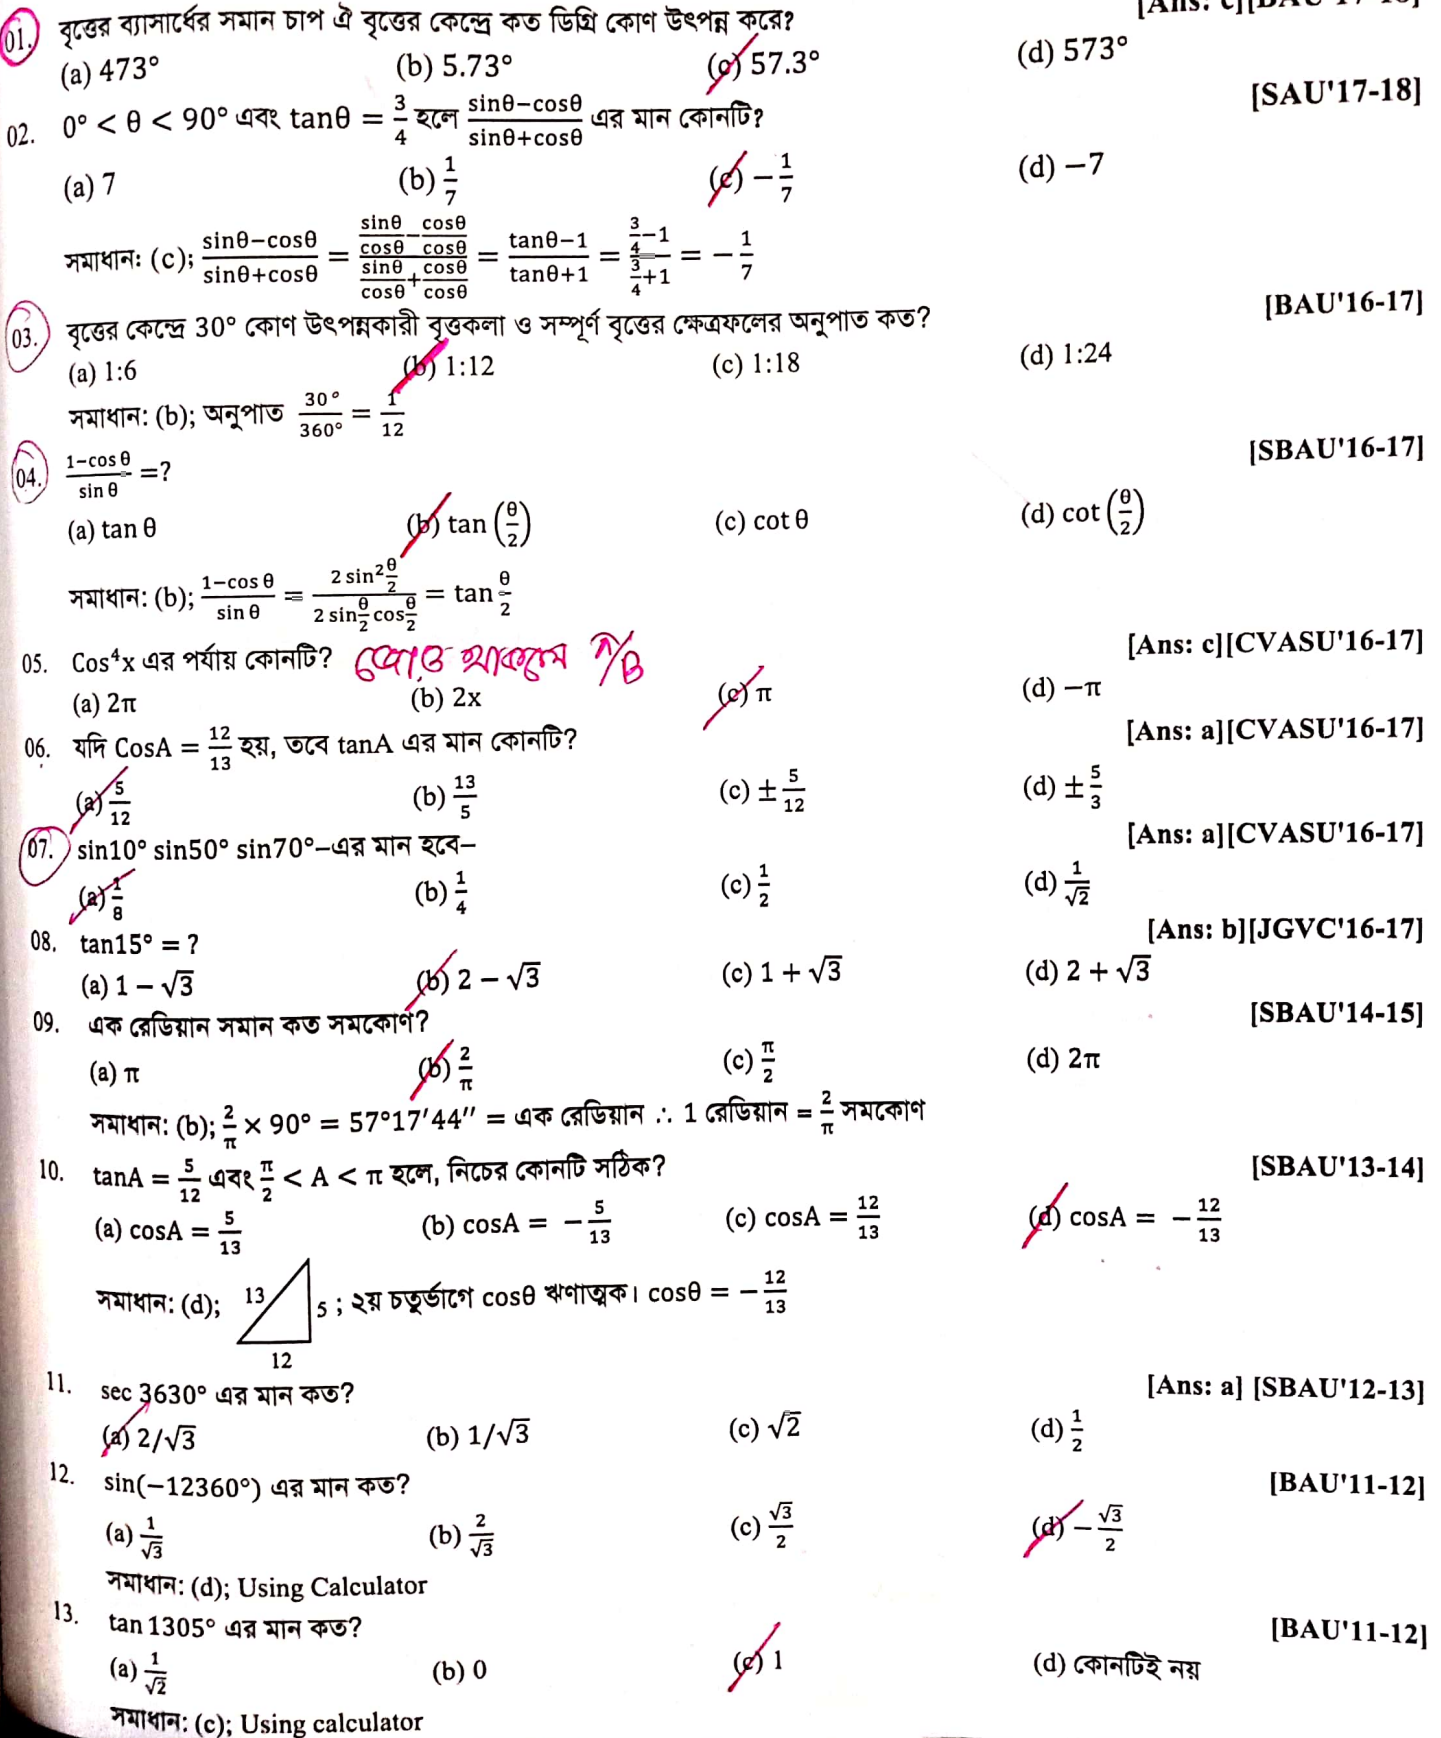 [Ans: c][BAU'17-18]
01. বৃত্তের ব্যাসার্ধের সমান চাপ ঐ বৃত্তের কেন্দ্রে কত ডিগ্রি কোণ উৎপন্ন করে?
(a) 473° (b) 5.73° (c) 57.3° (d) 573°
02. 0° < θ < 90° এবং tanθ = 3/4 হলে (sinθ−cosθ)/(sinθ+cosθ) এর মান কোনটি? [SAU'17-18]
(a) 7 (b) 1/7 (c) −1/7 (d) −7
সমাধানঃ (c); (sinθ−cosθ)/(sinθ+cosθ) = (sinθ/cosθ − cosθ/cosθ)/(sinθ/cosθ + cosθ/cosθ) = (tanθ−1)/(tanθ+1) = (3/4−1)/(3/4+1) = −1/7
03. বৃত্তের কেন্দ্রে 30° কোণ উৎপন্নকারী বৃত্তকলা ও সম্পূর্ণ বৃত্তের ক্ষেত্রফলের অনুপাত কত? [BAU'16-17]
(a) 1:6 (b) 1:12 (c) 1:18 (d) 1:24
সমাধান: (b); অনুপাত 30°/360° = 1/12
04. (1−cos θ)/sin θ =? [SBAU'16-17]
(a) tan θ (b) tan (θ/2) (c) cot θ (d) cot (θ/2)
সমাধান: (b); (1−cos θ)/sin θ = (2 sin² θ/2)/(2 sin θ/2 cos θ/2) = tan θ/2
05. Cos⁴x এর পর্যায় কোনটি? জোড় থাকলে π/B [Ans: c][CVASU'16-17]
(a) 2π (b) 2x (c) π (d) −π
06. যদি CosA = 12/13 হয়, তবে tanA এর মান কোনটি? [Ans: a][CVASU'16-17]
(a) 5/12 (b) 13/5 (c) ± 5/12 (d) ± 5/3
07. sin10° sin50° sin70°−এর মান হবে− [Ans: a][CVASU'16-17]
(a) 1/8 (b) 1/4 (c) 1/2 (d) 1/√2
08. tan15° = ? [Ans: b][JGVC'16-17]
(a) 1 − √3 (b) 2 − √3 (c) 1 + √3 (d) 2 + √3
09. এক রেডিয়ান সমান কত সমকোণ? [SBAU'14-15]
(a) π (b) 2/π (c) π/2 (d) 2π
সমাধান: (b); 2/π × 90° = 57°17′44″ = এক রেডিয়ান ∴ 1 রেডিয়ান = 2/π সমকোণ
10. tanA = 5/12 এবং π/2 < A < π হলে, নিচের কোনটি সঠিক? [SBAU'13-14]
(a) cosA = 5/13 (b) cosA = −5/13 (c) cosA = 12/13 (d) cosA = −12/13
সমাধান: (d); 13 5 ; ২য় চতুর্ভাগে cosθ ঋণাত্মক। cosθ = −12/13
12
11. sec 3630° এর মান কত? [Ans: a] [SBAU'12-13]
(a) 2/√3 (b) 1/√3 (c) √2 (d) 1/2
12. sin(−12360°) এর মান কত? [BAU'11-12]
(a) 1/√3 (b) 2/√3 (c) √3/2 (d) −√3/2
সমাধান: (d); Using Calculator
13. tan 1305° এর মান কত? [BAU'11-12]
(a) 1/√2 (b) 0 (c) 1 (d) কোনটিই নয়
সমাধান: (c); Using calculator